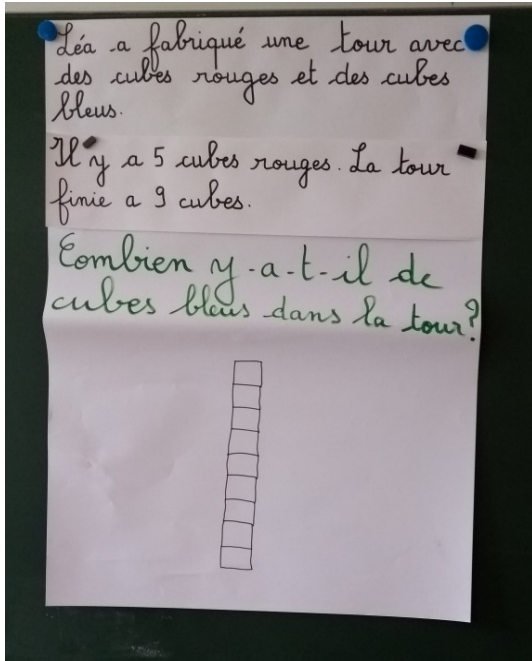 Léa a fabriqué une tour avec
des cubes rouges et des cubes
bleus.
Il y a 5 cubes rouges. La tour
finie a 9 cubes.
Combien y-a-t-il de
cubes bleus dans la tour?